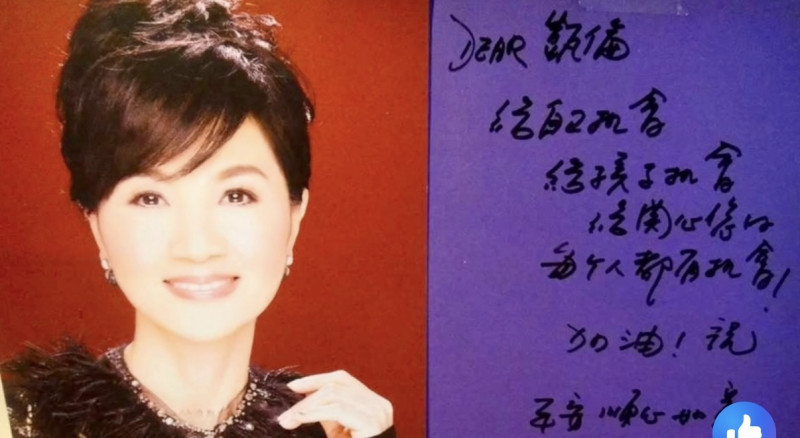 DEAR 甄倫
給自己机會
給孩子机會
給関心您的
每个人都有机會!
加油! 祝
平安順心如意